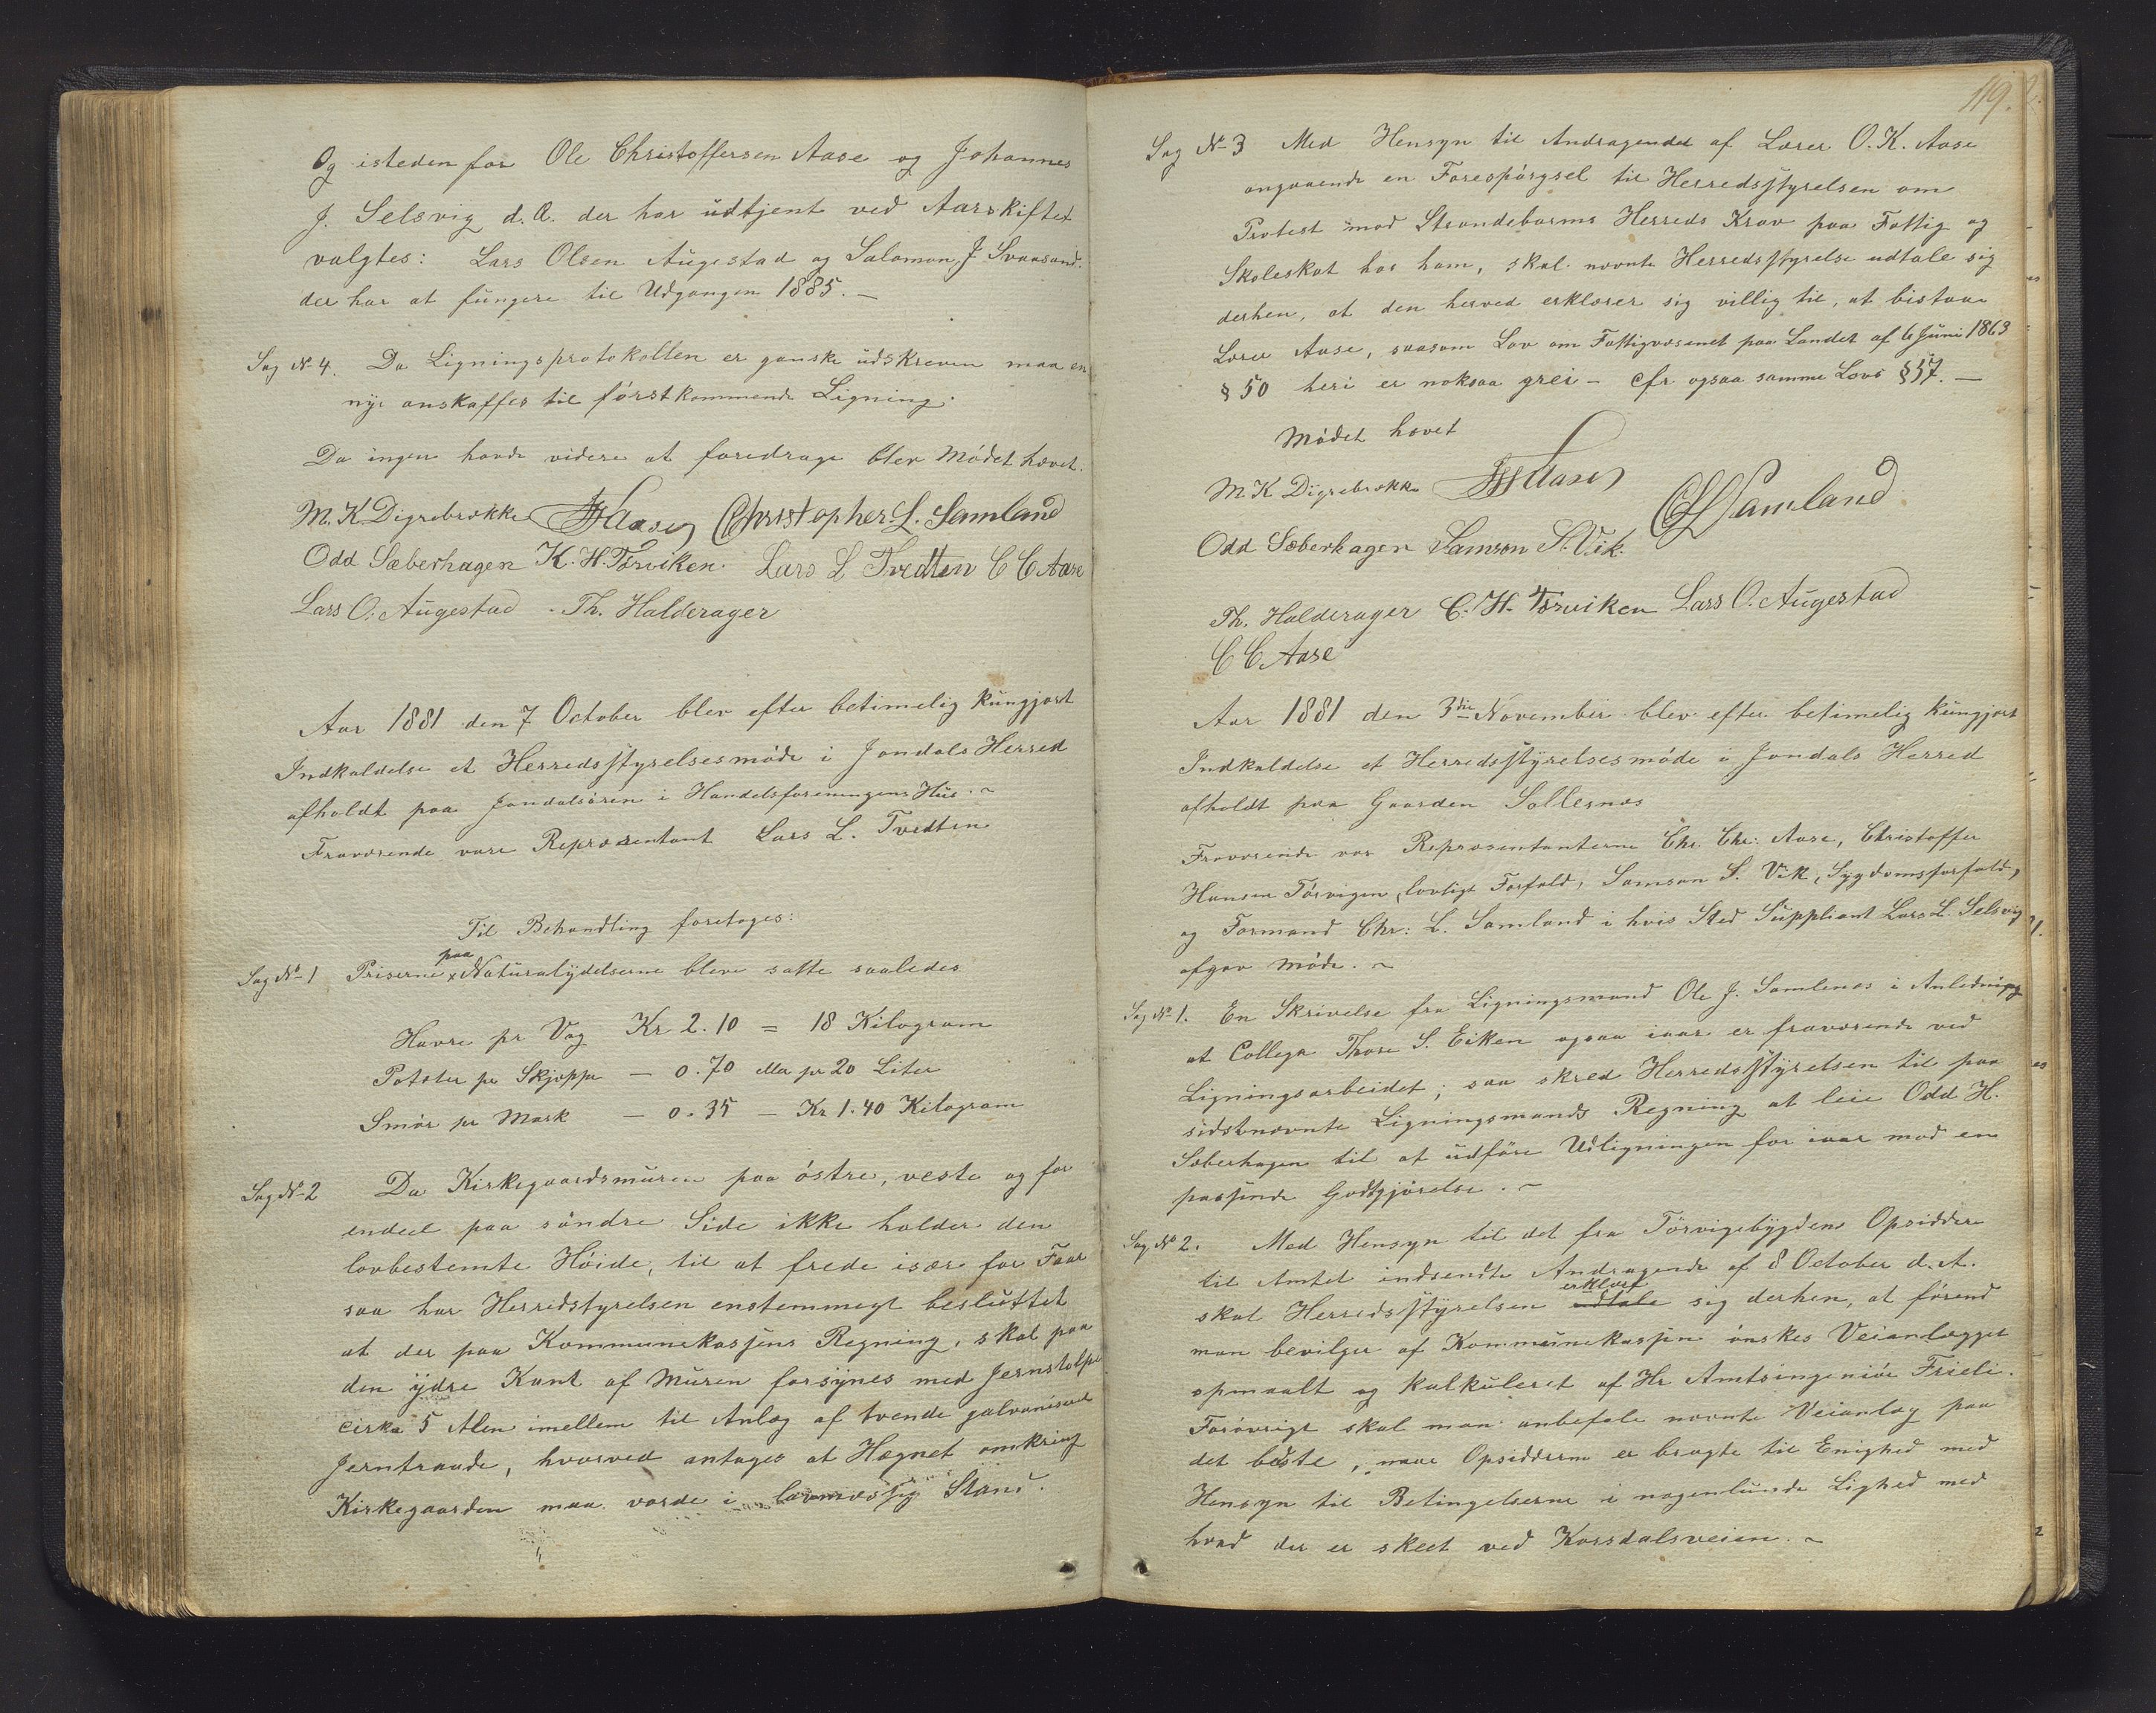 Og isteden for Ole Christoffersen Aase og Johannes
J. Selsvig d.A. der har udtjent ved Aarskiftet
valgtes: Lars Olsen Augestad og Salamon J. Svaasand.
der har at fungere til Udgangen 1885.—
Sag No 4. Da Ligningsprotokollen er ganske udskreven maa en
nye anskaffes til förstkommende Ligning.
Da ingen havde videre at foredrage blev Mödet hævet.
M. K Digrebrække Christopher L. Samland
Odd Sæberhagen K. H. Törviken. Lars L Tvedten C C Aase
Lars O. Augestad. Th. Halderager
Aar 1881 den 7 October blev efter betimelig kungjort
Indkaldelse et Herredsstyrelsesmöde i Jondals Herred
afholdt paa Jondalsören i Handelsforeningens Hus. ~
Fraværende vare Repræsentant Lars L. Tvedten
Til Behandling foretages:
Sag No 1 Priserne paa Naturalydelserne bleve satte saaledes
Havre pr Vog Kr 2.10 = 18 Kilogram
Poteter pr Skjeppe — 0.70 eller pr 20 Liter
Smör pr Mark — 0.35 — Kr 1.40 Kilogram
Sag No 2 Da Kirkegaardsmuren paa östre, veste og for
endeel paa söndre Side ikke holder den
lovbestemte Höide, til at frede især for Faar
saa har Herredstyrelsen enstemmegt besluttet
at der paa Kommunekassens Regning, skal paa
den ydre Kant af Muren forsynes med Jernstolpe
cirka 5 Alen imellem til Anlæg af tvende galvaniserede
Jerntraade, hvorved antages at Hegnet omkring
Kirkegaarden maa vorde i lovmæssig Stand.
119.
Sag No 3 Med Hensyn til Andragendet af Lærer O. K. Aase
angaaende en Forespörgsel til Herredsstyrelsen om
Protest mod Strandebarms Herreds Krav paa Fattig og
Skoleskat hos ham, skal nævnte Herredsstyrelse udtale sig
derhen, at den herved erklærer sig villig til, at bistaae
Lærer Aase, saasom Lov om Fattigvæsenet paa Landet af 6 Juni 1863
§ 50 heri er noksaa grei — cfr ogsaa samme Lovs § 57. —
Mödet hævet
M. K Digrebrække CL Samland
Odd Sæberhagen Samson S. Vik.
Th. Halderager C. H. Törviken Lars O. Augestad
C C Aase
Aar 1881 den 3die November blev efter betimelig kungjort
Indkaldelse et Herredsstyrelsesmöde i Jondals Herred
afholdt paa Gaarden Sollesnæs
Fraværende var Repræsentanterne Chr. Chr. Aase, Christoffer
Hansen Törvigen, lovligt Forfald, Samson S. Vik, Sygdomsforfald,
og Formand Chr: L. Samland i hvis Sted Suppliant Lars L. Selsvig
afgav Möde. ~
Sag No 1. En Skrivelse fra Ligningsmand Ole J. Samlenæs i Anledning
at Collega Thore S. Eiken ogsaa iaar er fraværende ved
Ligningsarbeidet; saa skred Herredsstyrelsen til paa
sidstnævnte Ligningsmands Regning at leie Odd H.
Sæberhagen til at udföre Udligningen for iaar mod en
passende Godtgjörelse. ~
Sag No 2. Med Hensyn til det fra Törvigebygdens Opsiddere
til Amtet indsendte Andragende af 8 October d. A.
skal Herredsstyrelsen udtale erklære sig derhen, at förend
man bevilger af Kommunekassen önskes Veianlægget
opmaalt og kalkuleret af Hr Amtsingeniör Frieli.
Forövrigt skal man anbefale nævnte Veianlæg paa
det bedste, naar Opsidderne er bragte til Enighed med
Hensyn til Betingelserne i nogenlunde Lighed med
hvad der er skeet ved Korsdalsveien. ~